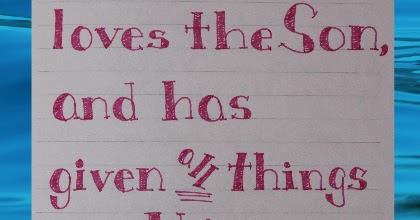 loves the Son,
and has
given all things